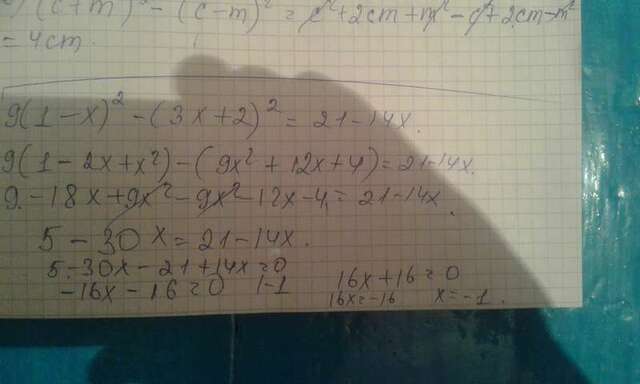 (c+m)² - (c-m)² = c²+2cm+m² - c²+2cm-m²
= 4cm
9(1-x)² - (3x+2)² = 21-14x.
9(1-2x+x²) - (9x²+12x+4) = 21-14x
9-18x+9x²-9x²-12x-4=21-14x.
5-30x=21-14x.
5-30x-21+14x=0
-16x-16=0 |-1 16x+16=0
16x=-16 x=-1.